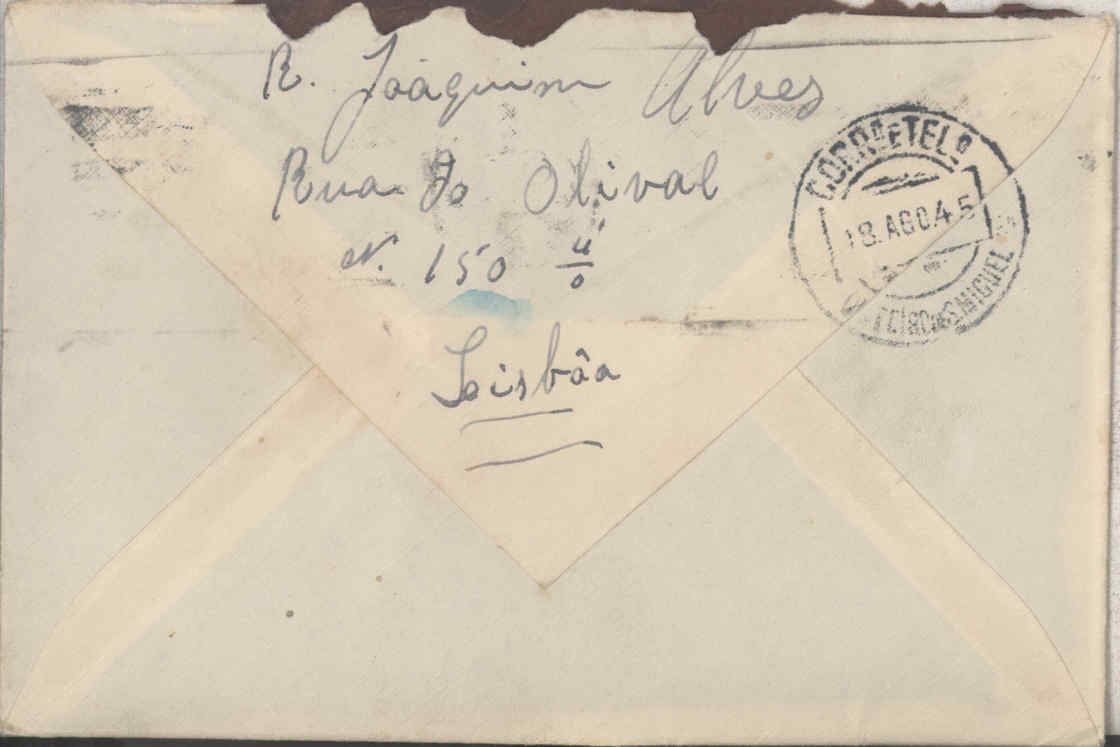 R. Joaquim Alves
Rua do Olival
N. 150 4/o
Lisbôa
CORR.E TEL.
18.AGO.45
S.MIGUEL